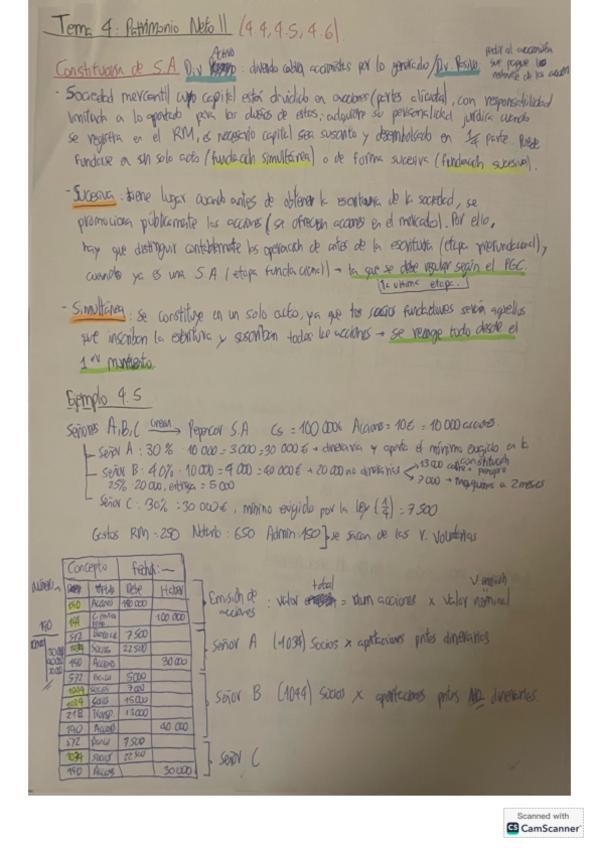 Tema 4: Patrimonio Neto II (4.4, 4.5, 4.6)
Constitución de S.A Div Activo : dividendo cobran accionistas por lo generado / Div. Pasivo: pedir al accionista que pague
- Sociedad mercantil cuyo capital está dividido en acciones (partes alícuotas), con responsabilidad
limitada a lo aportado para los dueños de estas; adquiere su personalidad jurídica cuando
se registra en el RM, es necesario capital sea suscrito y desembolsado en 1/4 parte. Puede
fundarse en un solo acto (fundación simultánea) o de forma sucesiva (fundación sucesiva).
- Sucesiva: tiene lugar cuando antes de obtener la escritura de la sociedad, se
promociona públicamente las acciones (se ofrecen acciones en el mercado). Por ello,
hay que distinguir contablemente las operaciones de antes de la escritura (etapa prefundacional),
cuando ya es una S.A (etapa fundacional) → la que se debe regular según el PGC.
la última etapa.
- Simultánea: se constituye en un solo acto, ya que los socios fundadores serán aquellos
que inscriban la escritura y suscriban todas las acciones → se recoge todo desde el
1er momento.
Ejemplo 4.5
Señores A, B, C crean → Pepencor S.A CS = 100 000€ Acciones = 10€ = 10 000 acciones.
Señor A: 30% · 10 000 = 3 000 = 30 000€ → dineraria y aporta el mínimo exigido en la constitución
Señor B: 40% · 10 000 = 4 000 = 40 000€ → 20 000 no dinerarias 13 000
25% · 20 000, entrega = 5 000 7 000 → maquinaria a 2 meses
Señor C: 30% = 30 000€, mínimo exigido por la ley (1/4) = 7 500
Gastos RM = 250 Notario: 650 Admin: 150 } se sacan de las r. Voluntarias
Concepto Fecha: —
Debe Haber
190 Acciones 100 000
194 100 000
572 Bancos 7 500
1034 Socios 22 500
190 Acciones 30 000
572 Bancos 5 000
1044 Socios 7 000
1034 Socios 15 000
218 Transp. 13 000
190 Acciones 40 000
572 Bancos 7 500
1034 Socios 22 500
190 Acciones 30 000
Emisión de acciones : valor total = num acciones × valor nominal
Señor A (1034) Socios × aportaciones pntes dinerarias
Señor B (1044) Socios × aportaciones pntes NO dinerarias
Señor C
Scanned with
CS CamScanner